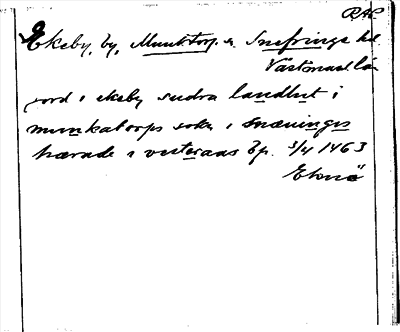 RAP
Ekeby, by, Munktorp s. Snefringe hd.
Västmanl. län
jord i ekeby sudra landbut i
munkatorps sokn i snæuinges
hærade i vesteraas bp. 3/4 1463
Ekesiö